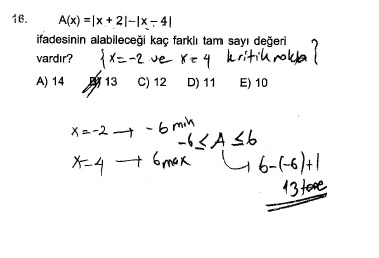 16. A(x) =|x + 2|−|x − 4|
ifadesinin alabileceği kaç farklı tam sayı değeri
vardır? {x=-2 ve x=4 kritik nokta}
A) 14 B) 13 C) 12 D) 11 E) 10
x=-2 → -6 min
-6 ≤ A ≤ 6
x=4 → 6 max
↳ 6-(-6)+1
13 tane